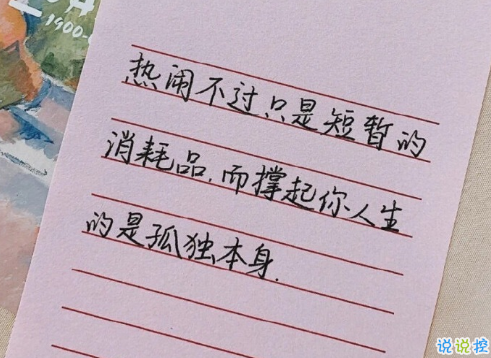 1900-
热闹不过只是短暂的
消耗品.而撑起你人生
的是孤独本身.
说说控